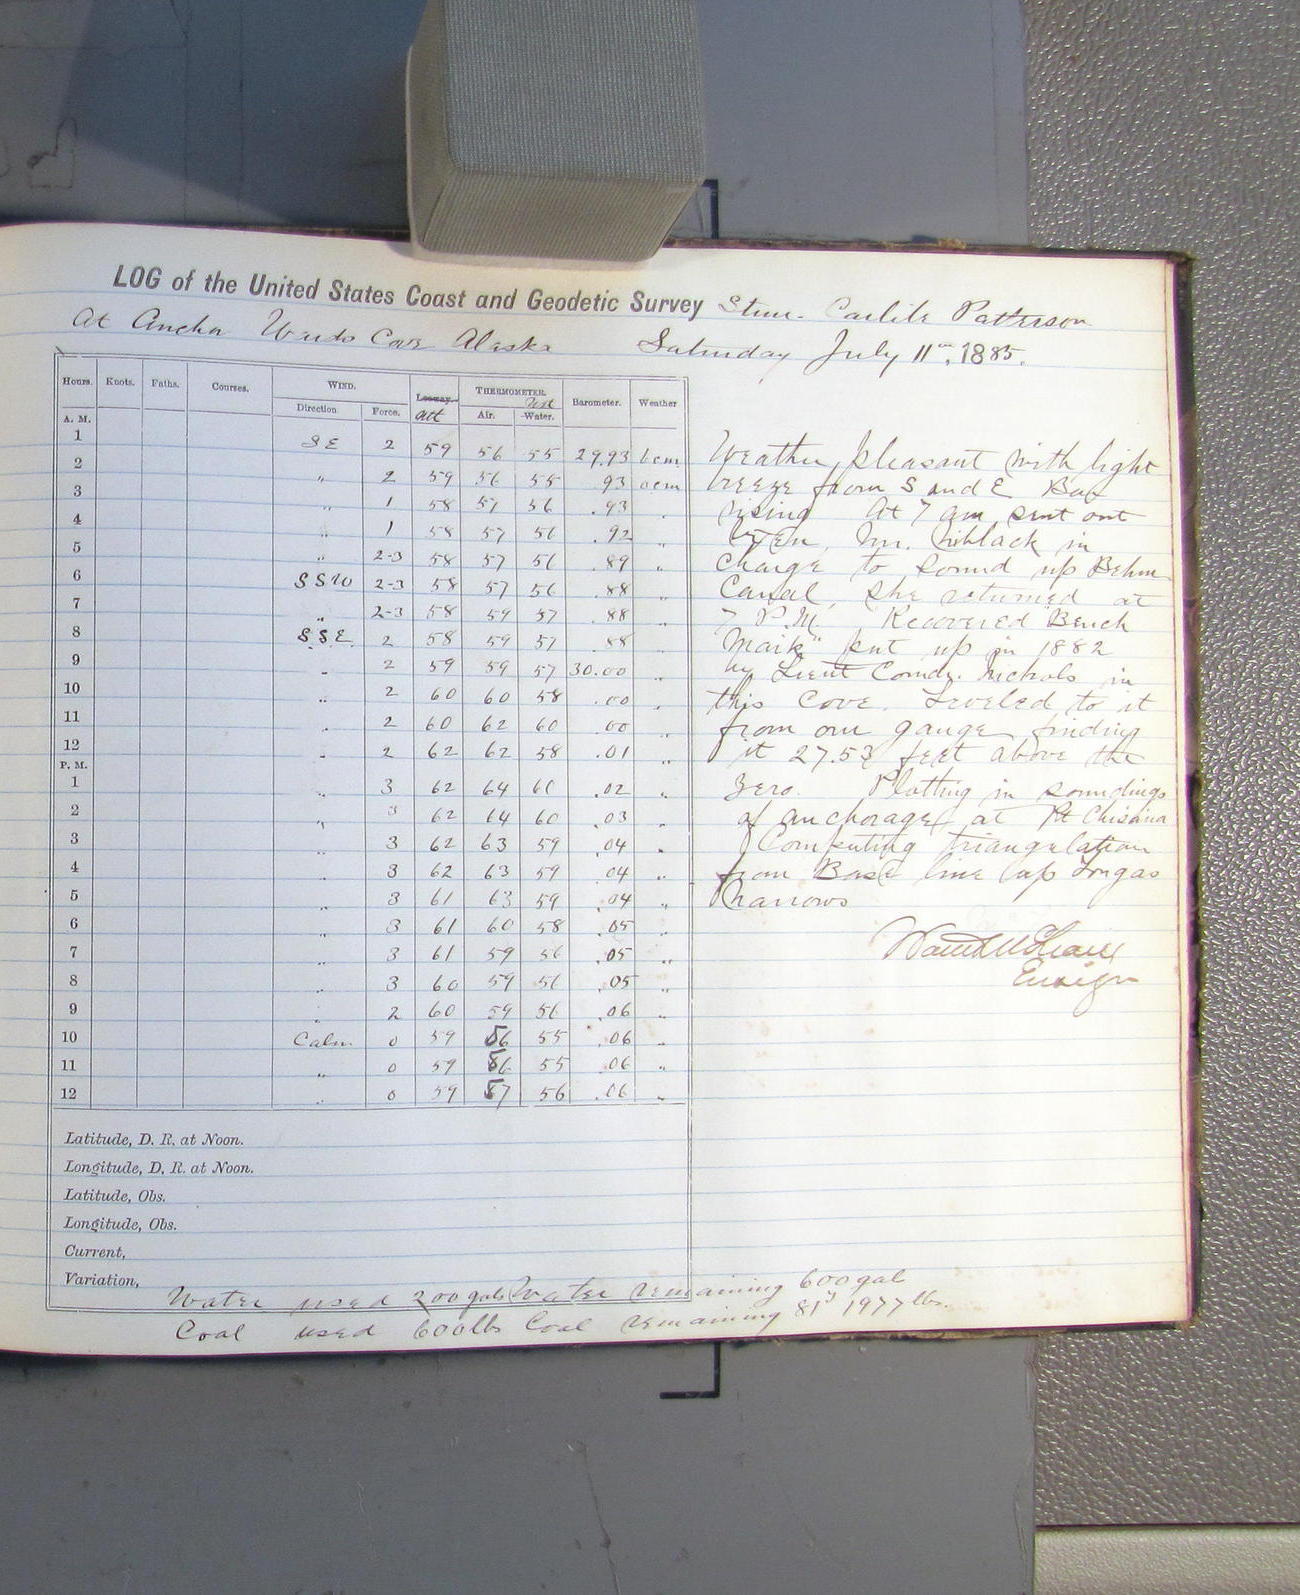 LOG of the United States Coast and Geodetic Survey Stmr. Carlile Patterson
At Anchor Wards Cove Alaska Saturday July 11th, 1885.
Hours. Knots. Faths. Courses. WIND. Leeway. THERMOMETER. Barometer. Weather
Direction Force. Att Air. Wet Water.
A. M.
1 SE 2 59 56 55 29.93 bcm
2 " 2 59 56 55 .93 ocm
3 " 1 58 57 56 .93 "
4 " 1 58 57 56 .92 "
5 " 2-3 58 57 56 .89 "
6 SSW 2-3 58 57 56 .88 "
7 " 2-3 58 59 57 .88 "
8 S.S.E. 2 58 59 57 .88 "
9 " 2 59 59 57 30.00 "
10 " 2 60 60 58 .00 "
11 " 2 60 62 60 .00 "
12 " 2 62 62 58 .01 "
P. M.
1 " 3 62 64 61 .02 "
2 " 3 62 64 60 .03 "
3 " 3 62 63 59 .04 "
4 " 3 62 63 59 .04 "
5 " 3 61 63 59 .04 "
6 " 3 61 60 58 .05 "
7 " 3 61 59 56 .05 "
8 " 3 60 59 56 .05 "
9 " 2 60 59 56 .06 "
10 Calm 0 59 56 55 .06 "
11 " 0 59 56 55 .06 "
12 " 0 59 57 56 .06 "
Weather pleasant with light
breeze from S and E Bar
rising At 7 am sent out
Mr. Niblack in
charge to sound up Behm
Canal, she returned at
7 P.M. Recovered "Bench
Mark" put up in 1882
by Lieut Comdr. Nichols in
this Cove. Leveled to it
from our gauge finding
it 27.53 feet above the
zero. Plotting in soundings
of anchorage at Pt Chisana
Computing triangulation
from Base line up Tongas
Narrows
Ensign
Latitude, D. R. at Noon.
Longitude, D. R. at Noon.
Latitude, Obs.
Longitude, Obs.
Current,
Variation,
Water used 200 gals Water remaining 600 gal
Coal used 600 lbs Coal remaining 81 1977 lbs.